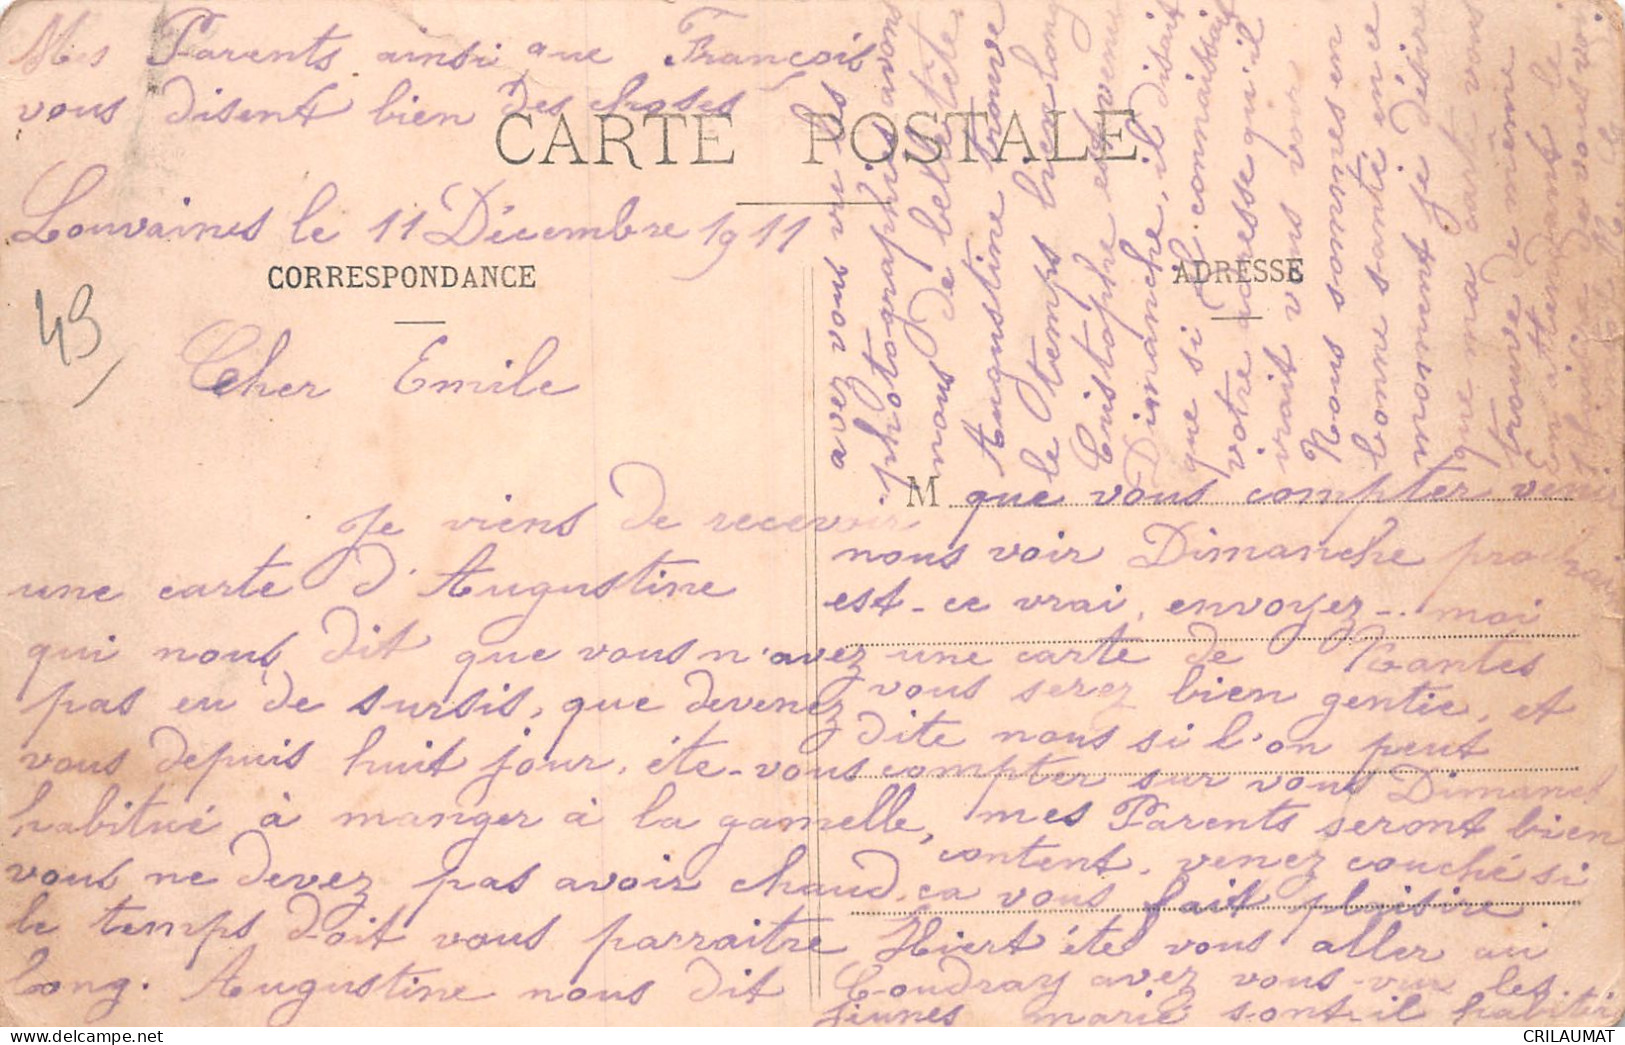 Mes Parents ainsi que François
vous disent bien des choses
CARTE POSTALE
Louvaines le 11 Décembre 1911
CORRESPONDANCE
ADRESSE
49
Cher Emile
Je viens de recevoir
une carte d'Augustine
qui nous dit que vous n'avez
pas eu de sursis, que devenez
vous depuis huit jour, éte-vous
habitué à manger à la gamelle,
vous ne devez pas avoir chaud,
le temps doit vous parraitre
long. Augustine nous dit
M que vous compter venir
nous voir Dimanche prochain
est-ce vrai, envoyez-moi
une carte de Nantes
vous serez bien gentie, et
dite nous si l'on peut
compter sur vous Dimanch
mes Parents seront bien
content, venez couché si
ça vous fait plaisire
Hiert éte vous aller au
Coudray avez vous-vur les
jeunes marié sont-il habiter
avez vous vu les
photographie avons
nous de belle tete
Augustine trouve
le temps bien long
Christophe est venu
Dimanche, il disait
que si il connaissait
votre adresse qu'il
irait vous voir
Nous sommes en
bonne santé
je désire
que ma carte vous
trouve de même
En attendant le
plaisir de vous voir